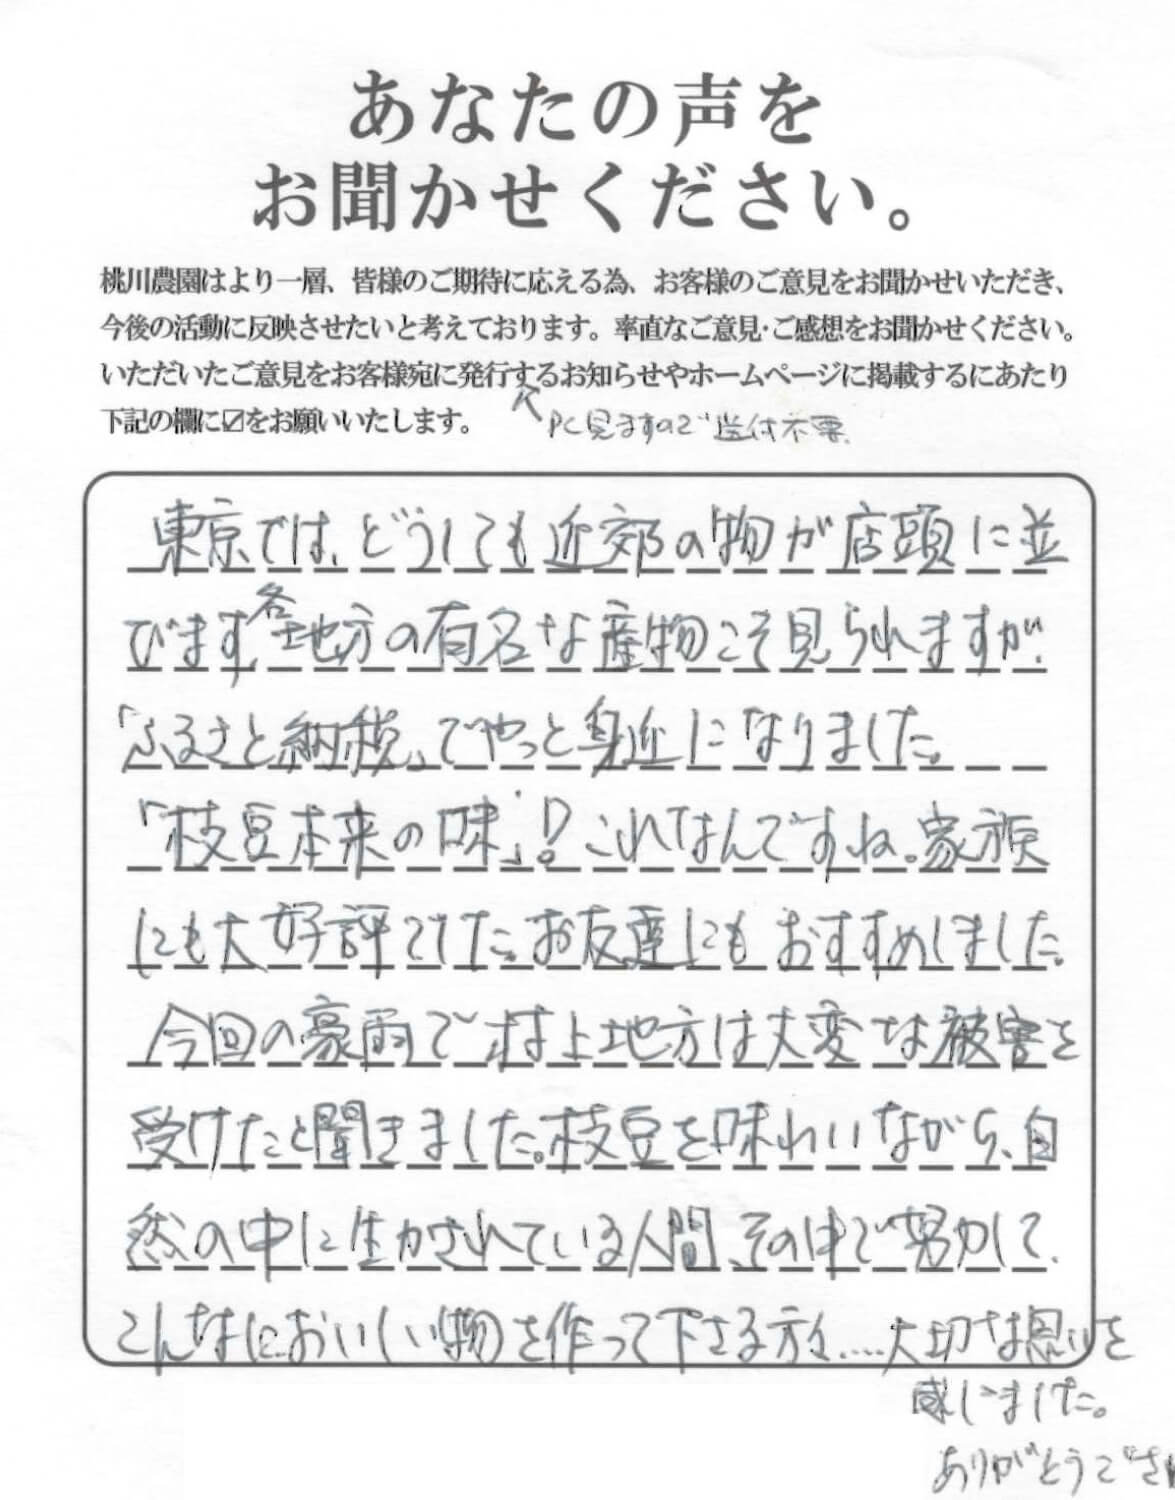 あなたの声を
お聞かせください。
桃川農園はより一層、皆様のご期待に応える為、お客様のご意見をお聞かせいただき、
今後の活動に反映させたいと考えております。率直なご意見・ご感想をお聞かせください。
いただいたご意見をお客様宛に発行するお知らせやホームページに掲載するにあたり
下記の欄に☑をお願いいたします。
PC見ますので送付不要
東京では、どうしても近郊の物が店頭に並
びます、各地方の有名な産物こそ見られますが、
「ふるさと納税」でやっと身近になりました。
「枝豆本来の味」!? これなんですね。家族
にも大好評でした。お友達にもおすすめしました。
今回の豪雨で村上地方は大変な被害を
受けたと聞きました。枝豆を味わいながら、自
然の中に生かされている人間、その中で努力して、
こんなにおいしい物を作って下さる方々....大切な思いを
感じました。
ありがとうござ